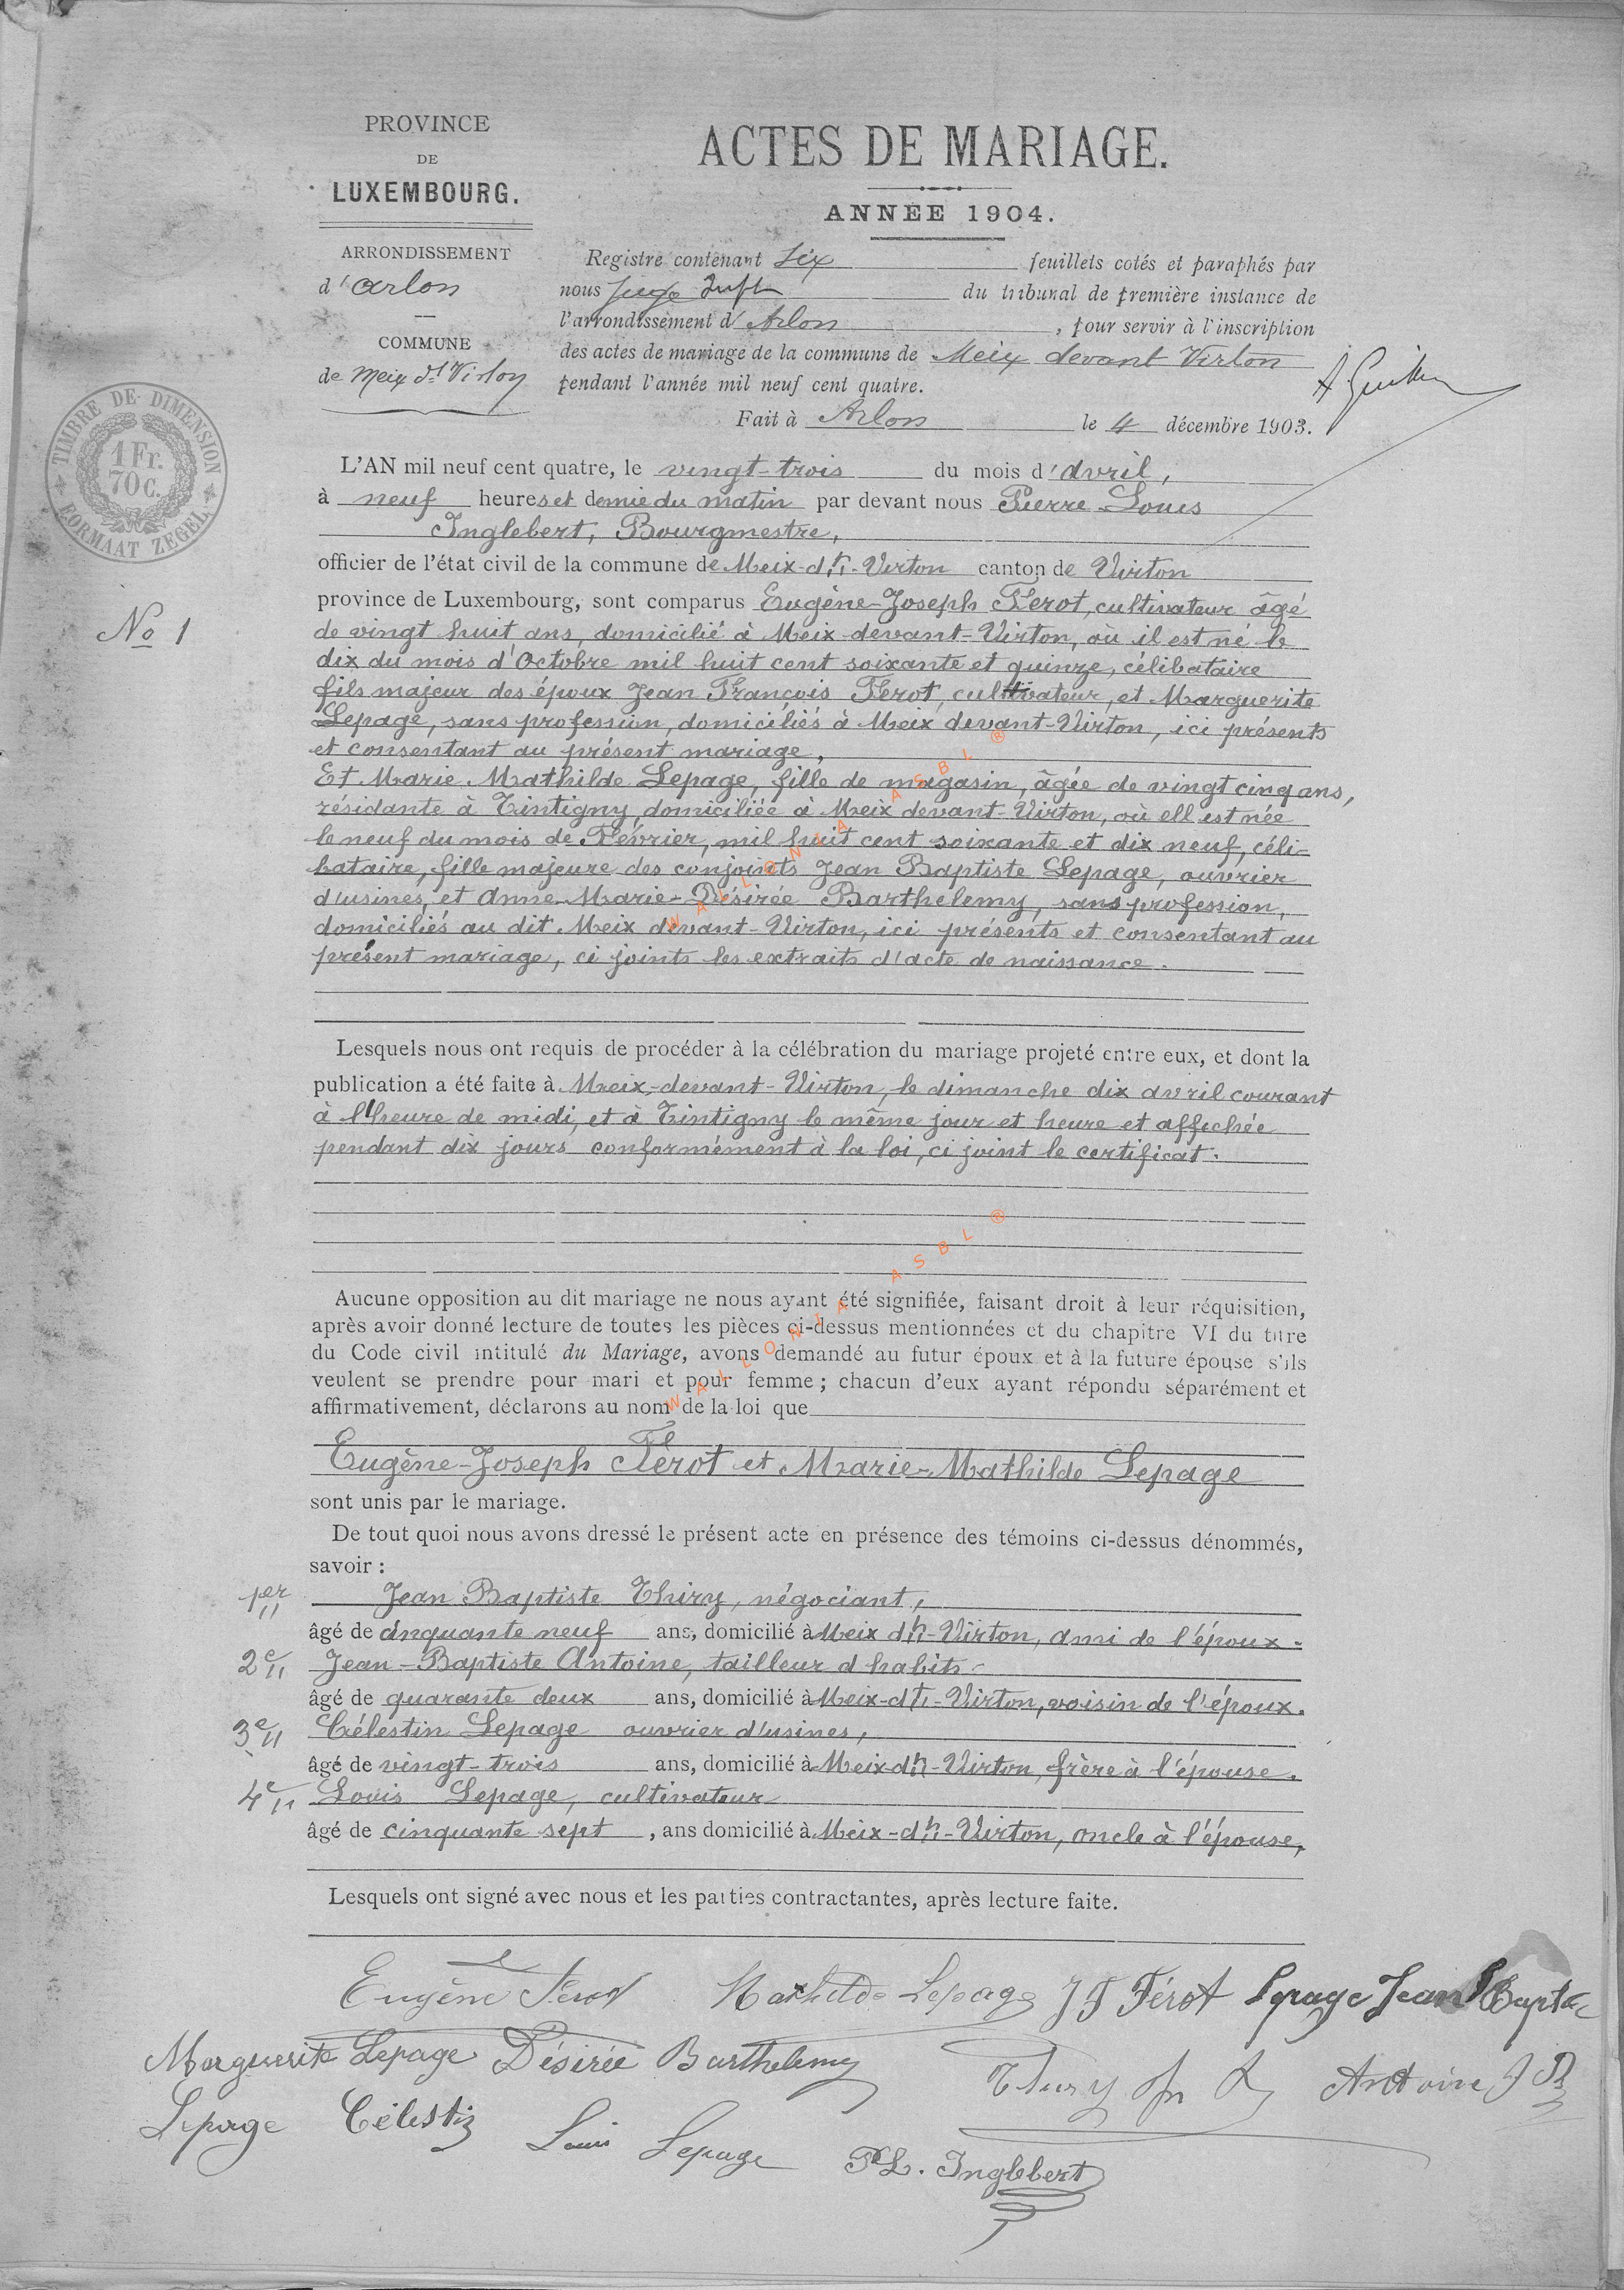 PROVINCE
DE
LUXEMBOURG.
ARRONDISSEMENT
d'Arlon
COMMUNE
de Meix dt Virton
ACTES DE MARIAGE.
ANNÉE 1904.
Registre contenant six feuillets cotés et paraphés par
nous Juge du tribunal de première instance de
l'arrondissement d'Arlon, pour servir à l'inscription
des actes de mariage de la commune de Meix devant Virton
pendant l'année mil neuf cent quatre.
Fait à Arlon le 4 décembre 1903.
TIMBRE DE DIMENSION
1 Fr.
70 C.
FORMAAT ZEGEL
No 1
L'AN mil neuf cent quatre, le vingt-trois du mois d'Avril,
à neuf heures et demie du matin par devant nous Pierre Louis
Inglebert, Bourgmestre,
officier de l'état civil de la commune de Meix-dt-Virton canton de Virton
province de Luxembourg, sont comparus Eugène-Joseph Férot, cultivateur âgé
de vingt huit ans, domicilié à Meix-devant-Virton, où il est né le
dix du mois d'Octobre mil huit cent soixante et quinze, célibataire
fils majeur des époux Jean François Férot, cultivateur, et Marguerite
Lepage, sans profession, domiciliés à Meix devant-Virton, ici présents
et consentant au présent mariage,
Et Marie Mathilde Lepage, fille de magasin, âgée de vingt cinq ans,
résidante à Tintigny, domiciliée à Meix devant-Virton, où ell est née
le neuf du mois de Février, mil huit cent soixante et dix neuf, céli-
bataire, fille majeure des conjoints Jean Baptiste Lepage, ouvrier
d'usines, et Anne-Marie-Désirée Barthelemy, sans profession,
domiciliés au dit Meix devant-Virton, ici présents et consentant au
présent mariage, ci joints les extraits d'acte de naissance.
Lesquels nous ont requis de procéder à la célébration du mariage projeté entre eux, et dont la
publication a été faite à Meix-devant-Virton, le dimanche dix avril courant
à l'heure de midi, et à Tintigny le même jour et heure et affichée
pendant dix jours conformément à la loi, ci joint le certificat.
Aucune opposition au dit mariage ne nous ayant été signifiée, faisant droit à leur réquisition,
après avoir donné lecture de toutes les pièces ci-dessus mentionnées et du chapitre VI du titre
du Code civil intitulé du Mariage, avons demandé au futur époux et à la future épouse s'ils
veulent se prendre pour mari et pour femme ; chacun d'eux ayant répondu séparément et
affirmativement, déclarons au nom de la loi que
Eugène-Joseph Férot et Marie-Mathilde Lepage
sont unis par le mariage.
De tout quoi nous avons dressé le présent acte en présence des témoins ci-dessus dénommés,
savoir :
1er Jean Baptiste Thiry, négociant,
âgé de cinquante neuf ans, domicilié à Meix dt-Virton, ami de l'époux.
2e Jean-Baptiste Antoine, tailleur d habits
âgé de quarante deux ans, domicilié à Meix-dt-Virton, voisin de l'époux.
3e Célestin Lepage ouvrier d'usines,
âgé de vingt-trois ans, domicilié à Meix-dt-Virton, frère à l'épouse.
4e Louis Lepage, cultivateur
âgé de cinquante sept, ans domicilié à Meix-dt-Virton, oncle à l'épouse,
Lesquels ont signé avec nous et les parties contractantes, après lecture faite.
Eugène Férot Mathilde Lepage J F Férot Lepage Jean Bapte
Marguerite Lepage Désirée Barthelemy Thiry Antoine J B
Lepage Célestin Louis Lepage P L. Inglebert
WALLONIA ASBL ®
WALLONIA ASBL ®